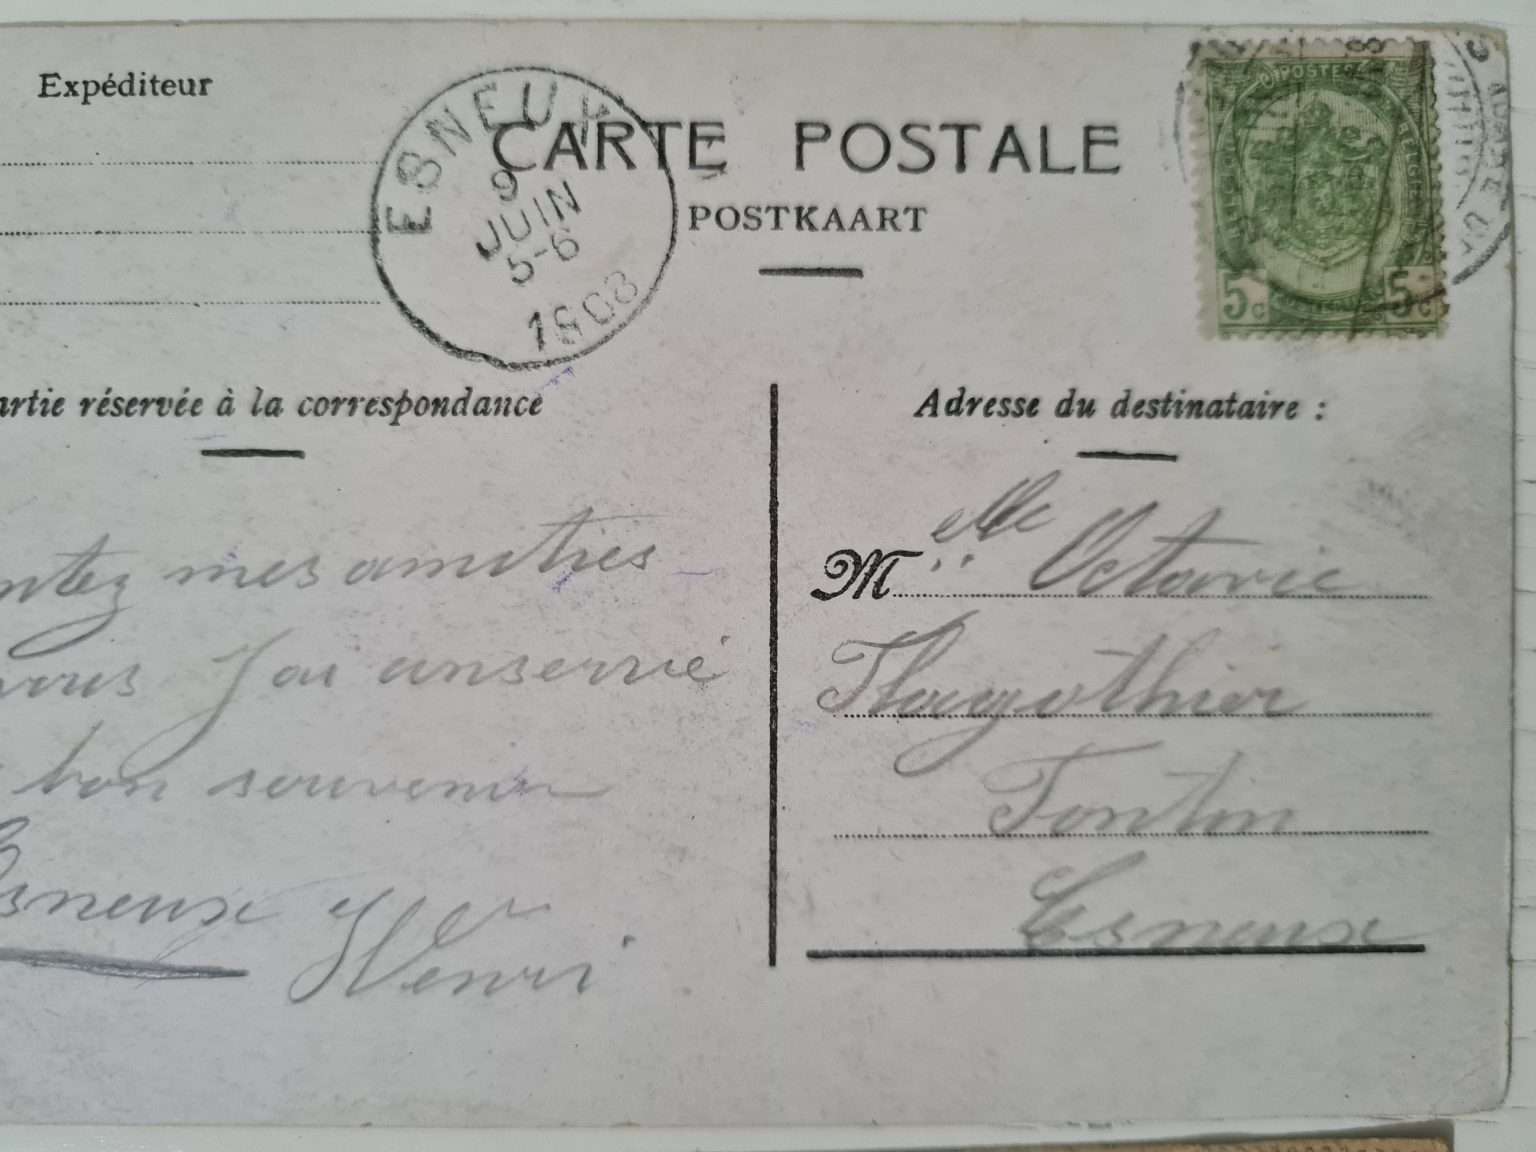 Expéditeur
ESNEUX
9
JUIN
5-6
1908
CARTE POSTALE
POSTKAART
POSTE
5c 5c
artie réservée à la correspondance
Adresse du destinataire :
ntez mes amitiés
vous J'ai conservé
bon souvenir
Esneux
Henri
Melle Octavie
Tontin
Esneux